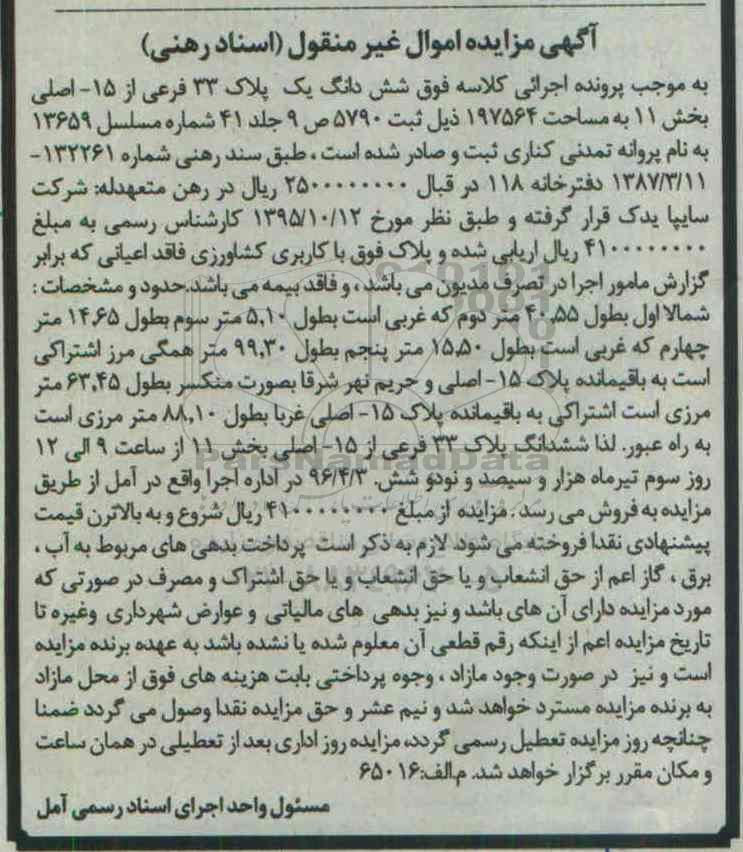 آگهی مزایده اموال غیر منقول (اسناد رهنی)
به موجب پرونده اجرائی کلاسه فوق شش دانگ یک پلاک ۳۳ فرعی از ۱۵- اصلی
بخش ۱۱ به مساحت ۱۹۷۵۶۴ ذیل ثبت ۵۷۹۰ ص ۹ جلد ۴۱ شماره مسلسل ۱۳۶۵۹
به نام پروانه تمدنی کناری ثبت و صادر شده است ، طبق سند رهنی شماره ۱۳۲۲۶۱-
۱۳۸۷/۳/۱۱ دفترخانه ۱۱۸ در قبال ۲۵۰۰۰۰۰۰۰۰ ریال در رهن متعهدله: شرکت
سایپا یدک قرار گرفته و طبق نظر مورخ ۱۳۹۵/۱۰/۱۲ کارشناس رسمی به مبلغ
۴۱۰۰۰۰۰۰۰۰ ریال اریابی شده و پلاک فوق با کاربری کشاورزی فاقد اعیانی که برابر
گزارش مامور اجرا در تصرف مدیون می باشد ، و فاقد بیمه می باشد.حدود و مشخصات :
شمالا اول بطول ۴۰،۵۵ متر دوم که غربی است بطول ۵،۱۰ متر سوم بطول ۱۴،۶۵ متر
چهارم که غربی است بطول ۱۵،۵۰ متر پنجم بطول ۹۹،۳۰ متر همگی مرز اشتراکی
است به باقیمانده پلاک ۱۵- اصلی و حریم نهر شرقا بصورت منکسر بطول ۶۳،۴۵ متر
مرزی است اشتراکی به باقیمانده پلاک ۱۵- اصلی غربا بطول ۸۸،۱۰ متر مرزی است
به راه عبور. لذا ششدانگ پلاک ۳۳ فرعی از ۱۵- اصلی بخش ۱۱ از ساعت ۹ الی ۱۲
روز سوم تیرماه هزار و سیصد و نودو شش. ۹۶/۴/۳ در اداره اجرا واقع در آمل از طریق
مزایده به فروش می رسد . مزایده از مبلغ ۴۱۰۰۰۰۰۰۰۰ ریال شروع و به بالاترن قیمت
پیشنهادی نقدا فروخته می شود. لازم به ذکر است پرداخت بدهی های مربوط به آب ،
برق ، گاز اعم از حق انشعاب و یا حق انشعاب و یا حق اشتراک و مصرف در صورتی که
مورد مزایده دارای آن های باشد و نیز بدهی های مالیاتی و عوارض شهرداری وغیره تا
تاریخ مزایده اعم از اینکه رقم قطعی آن معلوم شده یا نشده باشد به عهده برنده مزایده
است و نیز در صورت وجود مازاد ، وجوه پرداختی بابت هزینه های فوق از محل مازاد
به برنده مزایده مسترد خواهد شد و نیم عشر و حق مزایده نقدا وصول می گردد ضمنا
چنانچه روز مزایده تعطیل رسمی گردد، مزایده روز اداری بعد از تعطیلی در همان ساعت
و مکان مقرر برگزار خواهد شد. م.الف:۶۵۰۱۶
مسئول واحد اجرای اسناد رسمی آمل
ParsNamadData